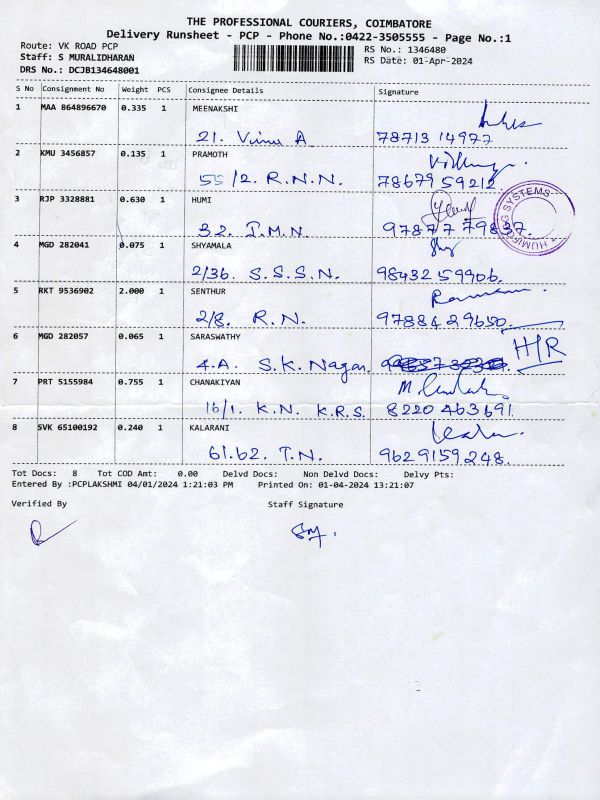 THE PROFESSIONAL COURIERS, COIMBATORE
Delivery Runsheet - PCP - Phone No.:0422-3505555 - Page No.:1
Route: VK ROAD PCP RS No.: 1346480
Staff: S MURALIDHARAN RS Date: 01-Apr-2024
DRS No.: DCJB134648001
S No Consignment No Weight PCS Consignee Details Signature
1 MAA 864896670 0.335 1 MEENAKSHI
21. A 78713 14977
2 KMU 3456857 0.135 1 PRAMOTH
55/2. R.N.N. 78679 59212
3 RJP 3328881 0.630 1 HUMI
32. I.M.N. 97877 79837.
HUMIFOG SYSTEMS
4 MGD 282041 0.075 1 SHYAMALA
2/36. S.S.S.N. 98432 59906.
5 RKT 9536902 2.000 1 SENTHUR
2/8. R.N. 97884 29650.
6 MGD 282057 0.065 1 SARASWATHY
4.A. S.K. Nagar. H/R
7 PRT 5155984 0.755 1 CHANAKIYAN
16/1. K.N. K.R.S. 8220 463691
8 SVK 65100192 0.240 1 KALARANI
61.62. T.N. 9629159248.
Tot Docs: 8 Tot COD Amt: 0.00 Delvd Docs: Non Delvd Docs: Delvy Pts:
Entered By :PCPLAKSHMI 04/01/2024 1:21:03 PM Printed On: 01-04-2024 13:21:07
Verified By Staff Signature